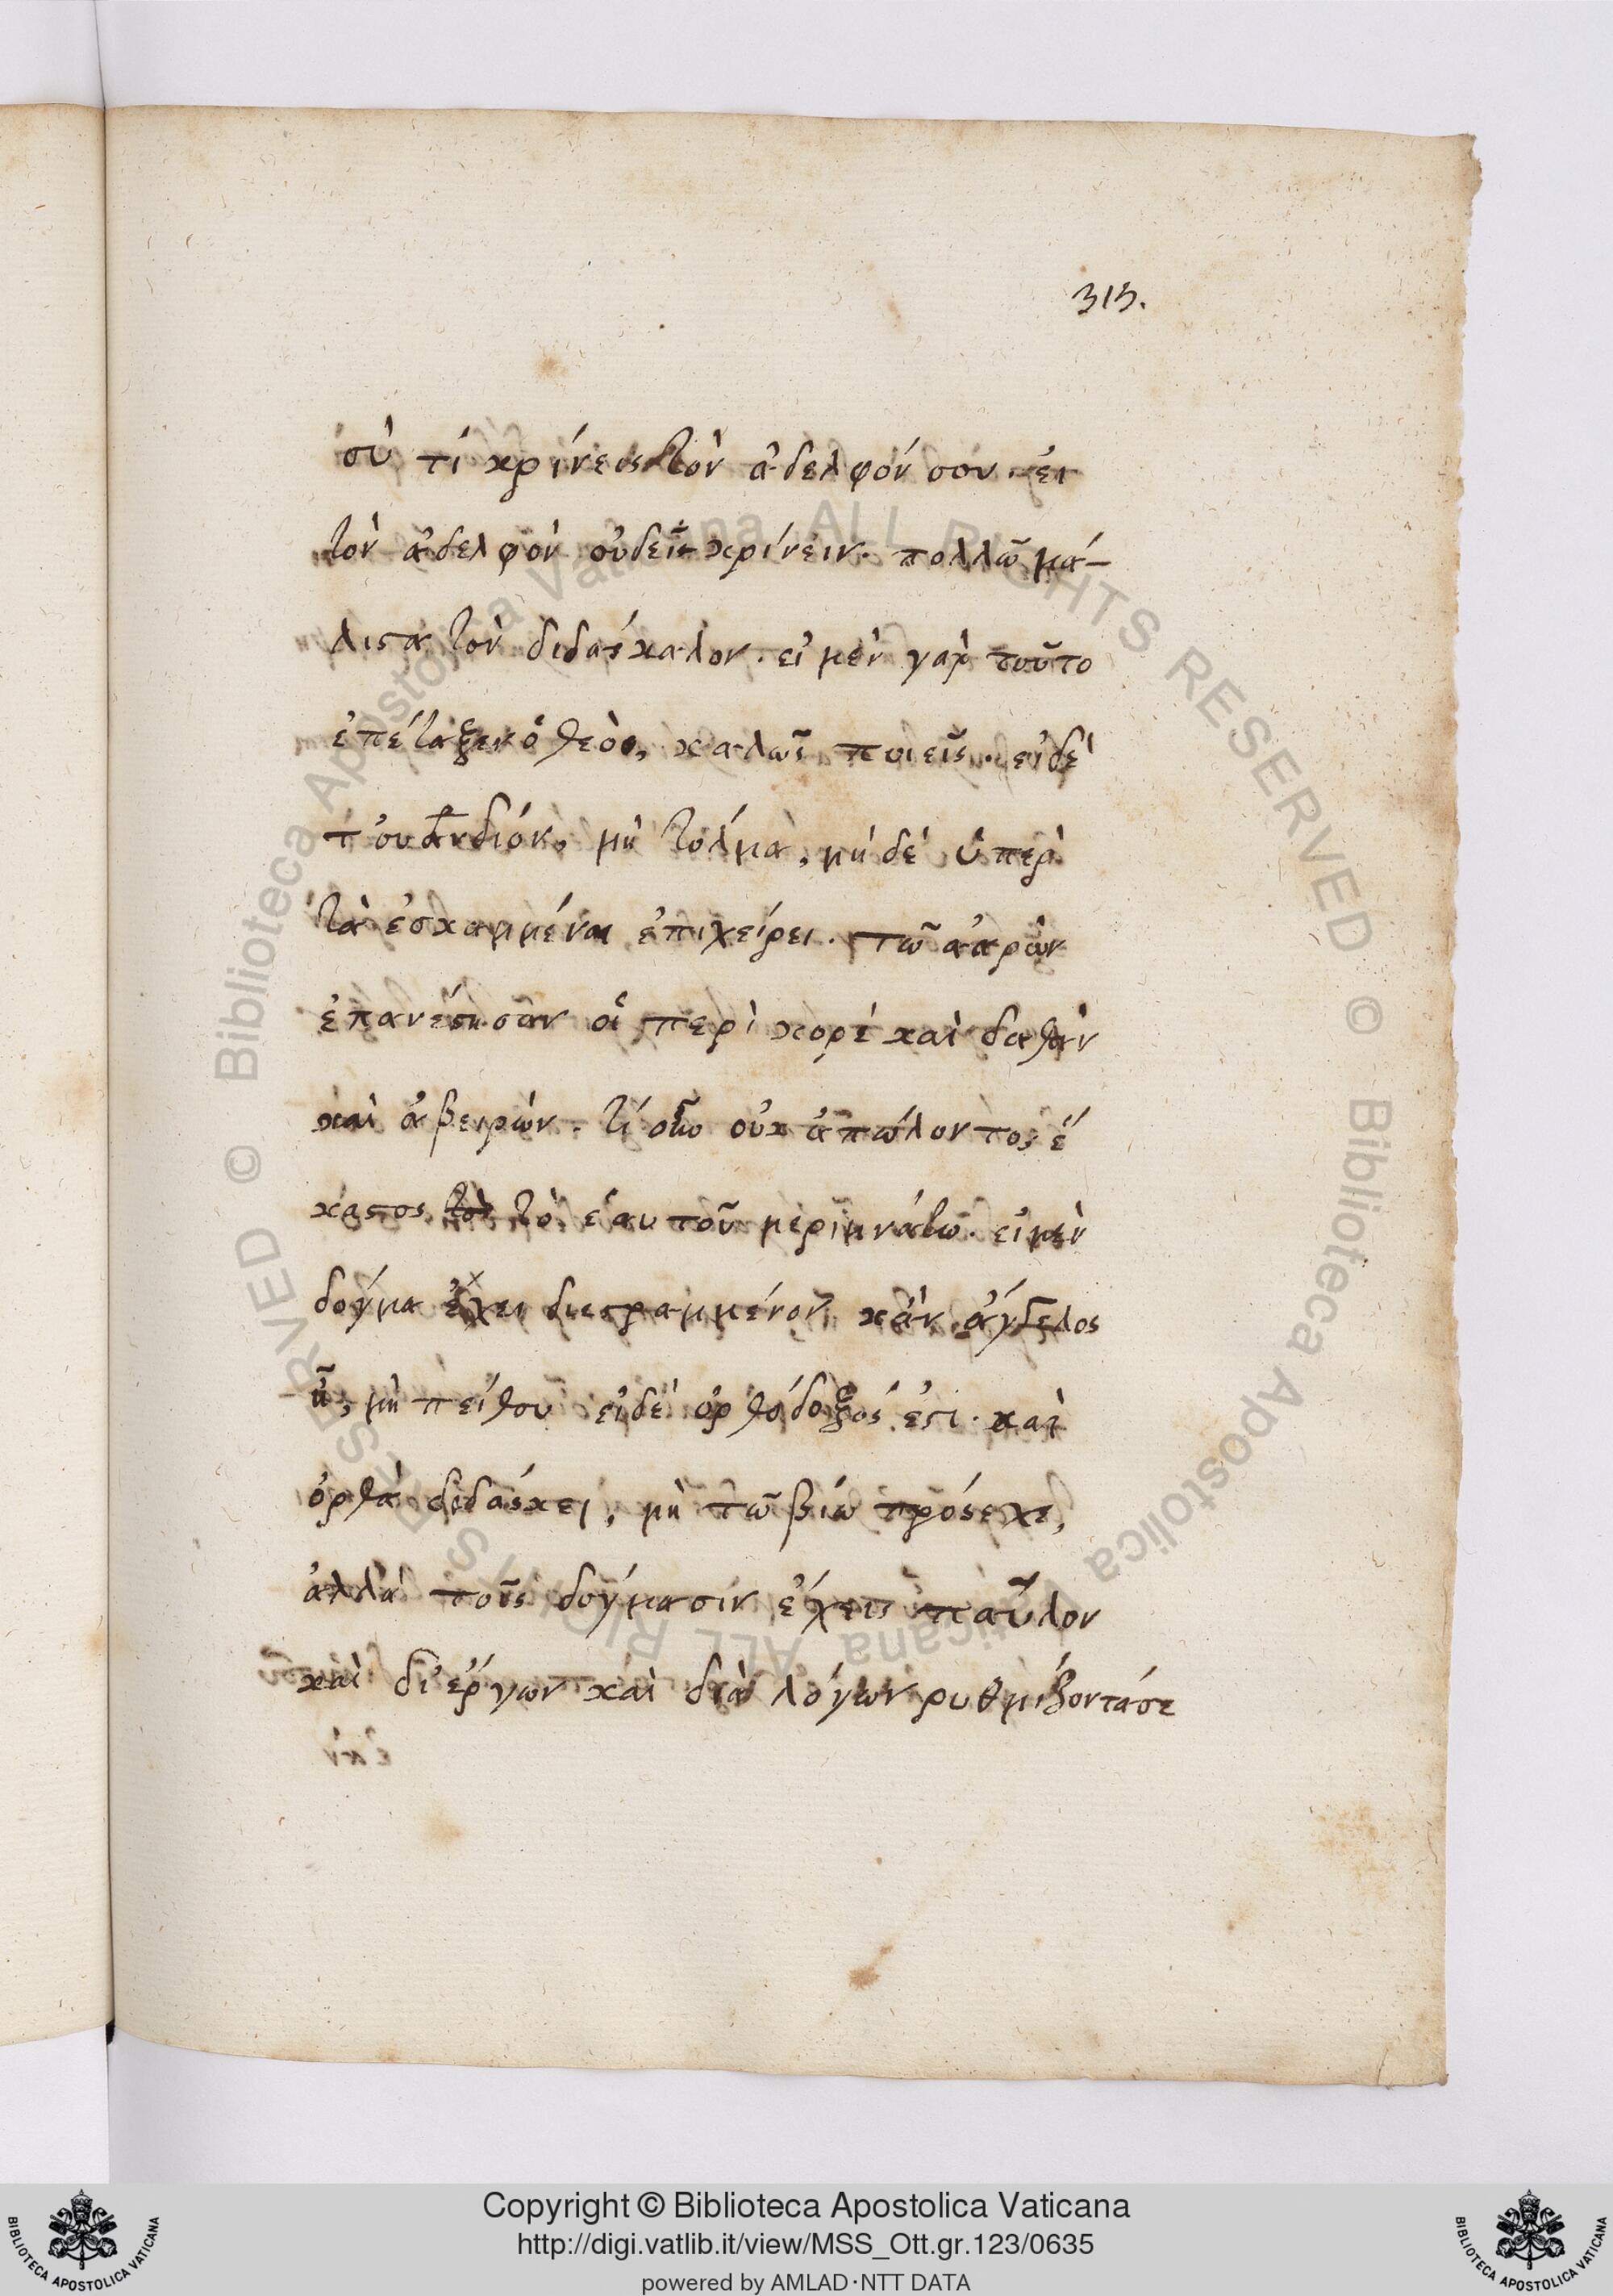 313.
σὺ τί κρίνεις τὸν ἀδελφόν σου· εἰ
τὸν ἀδελφὸν οὐ δεῖ κρίνειν· πολλῶ μά-
λιστα τὸν διδάσκαλον· εἰ μὲν γὰρ τοῦτο
ἐπέταξεν ὁ θεὸς, καλῶς ποιεῖς· εἰ δὲ
τοὐναντίον, μὴ τόλμα, μὴ δὲ ὑπὲρ
τὰ ἐσκαμμένα ἐπιχείρει· τῶ ἀαρὼν
ἐπανέστησαν οἱ περὶ κορὲ καὶ δαθὰν
καὶ ἀβειρών· τί οὖν οὐκ ἀπώλοντο; ἕ
καστος τὸ ἑαυτοῦ μεριμνάτω· εἰ μὲν
δόγμα ἔχει διεστραμμένον κἂν ἄγγελος
ἦ, μὴ πείθου εἰ δὲ ὀρθόδοξός ἐστι· καὶ
ὀρθὰ διδάσκει, μὴ τῶ βίω πρόσεχε,
ἀλλὰ τοῖς δόγμασιν ἔχεις παῦλον
καὶ δι' ἔργων καὶ διὰ λόγων ρυθμίζοντά σε
Copyright © Biblioteca Apostolica Vaticana
http://digi.vatlib.it/view/MSS_Ott.gr.123/0635
powered by AMLAD·NTT DATA
BIBLIOTECA APOSTOLICA VATICANA
BIBLIOTECA APOSTOLICA VATICANA
© Biblioteca Apostolica Vaticana ALL RIGHTS RESERVED
© Biblioteca Apostolica Vaticana ALL RIGHTS RESERVED